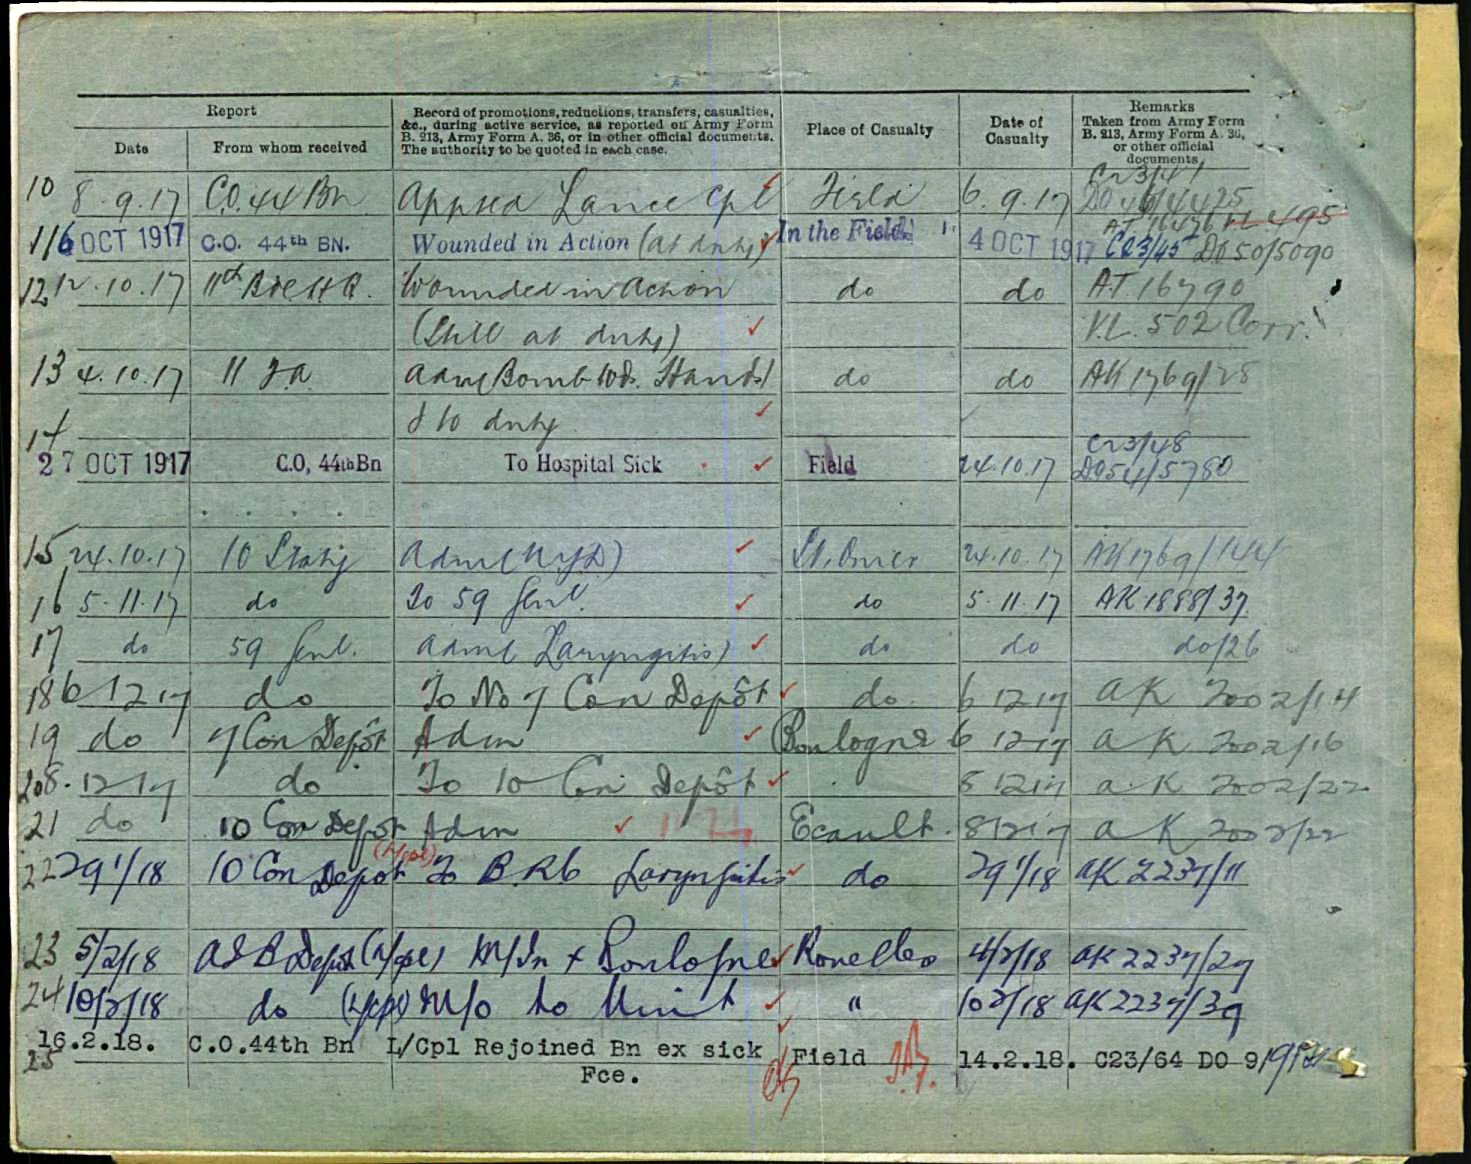 Report
Record of promotions, reductions, transfers, casualties, &c., during active service, as reported on Army Form B. 213, Army Form A. 36, or in other official documents. The authority to be quoted in each case.
Place of Casualty
Date of Casualty
Remarks Taken from Army Form B. 213, Army Form A. 36, or other official documents
Date From whom received
10 8.9.17 C.O. 44 Bn Appted Lance Cpl Field 6.9.17
11 6 OCT 1917 C.O. 44th BN. Wounded in Action (at duty) In the Field 4 OCT 1917 DO 50/5090
12 12.10.17 11th Bde HQ. Wounded in Action do do AT 16790
(Still at duty) V.L. 502 Corr.
13 4.10.17 11 FA Adm (Bomb Wd. Hand) do do AK 1769/28
& to duty
14
27 OCT 1917 C.O, 44th Bn To Hospital Sick Field 24.10.17 DO 54/5780
15 24.10.17 10 Staty Adm (NYD) St. Omer 24.10.17 AK 1769/144
16 5.11.17 do To 59 Genl. do 5.11.17 AK 1888/37
17 do 59 Genl. Adm (Laryngitis) do do do/26
18 6 12 17 do To No 7 Con Depôt do 6 12 17 AK 2002/14
19 do 7 Con Depôt Adm Boulogne 6 12 17 AK 2002/16
20 8.12 17 do To 10 Con Depôt 8 12 17 AK 2002/22
21 do 10 Con Depôt Adm Ecault. 8 12 17 AK 2002/22
22 29/1/18 10 Con Depot (L/Cpl) To B. Laryngitis do 29/1/18 AK 2237/11
23 5/2/18 A Depot (L/Cpl) M/In Boulogne Rouelles 4/2/18 AK 2237/29
24 10/2/18 do (L/Cpl) M/o to Unit " 10 2/18 AK 2237/39
16.2.18. C.O.44th Bn L/Cpl Rejoined Bn ex sick Field 14.2.18. C23/64 DO 9
25 Fce.